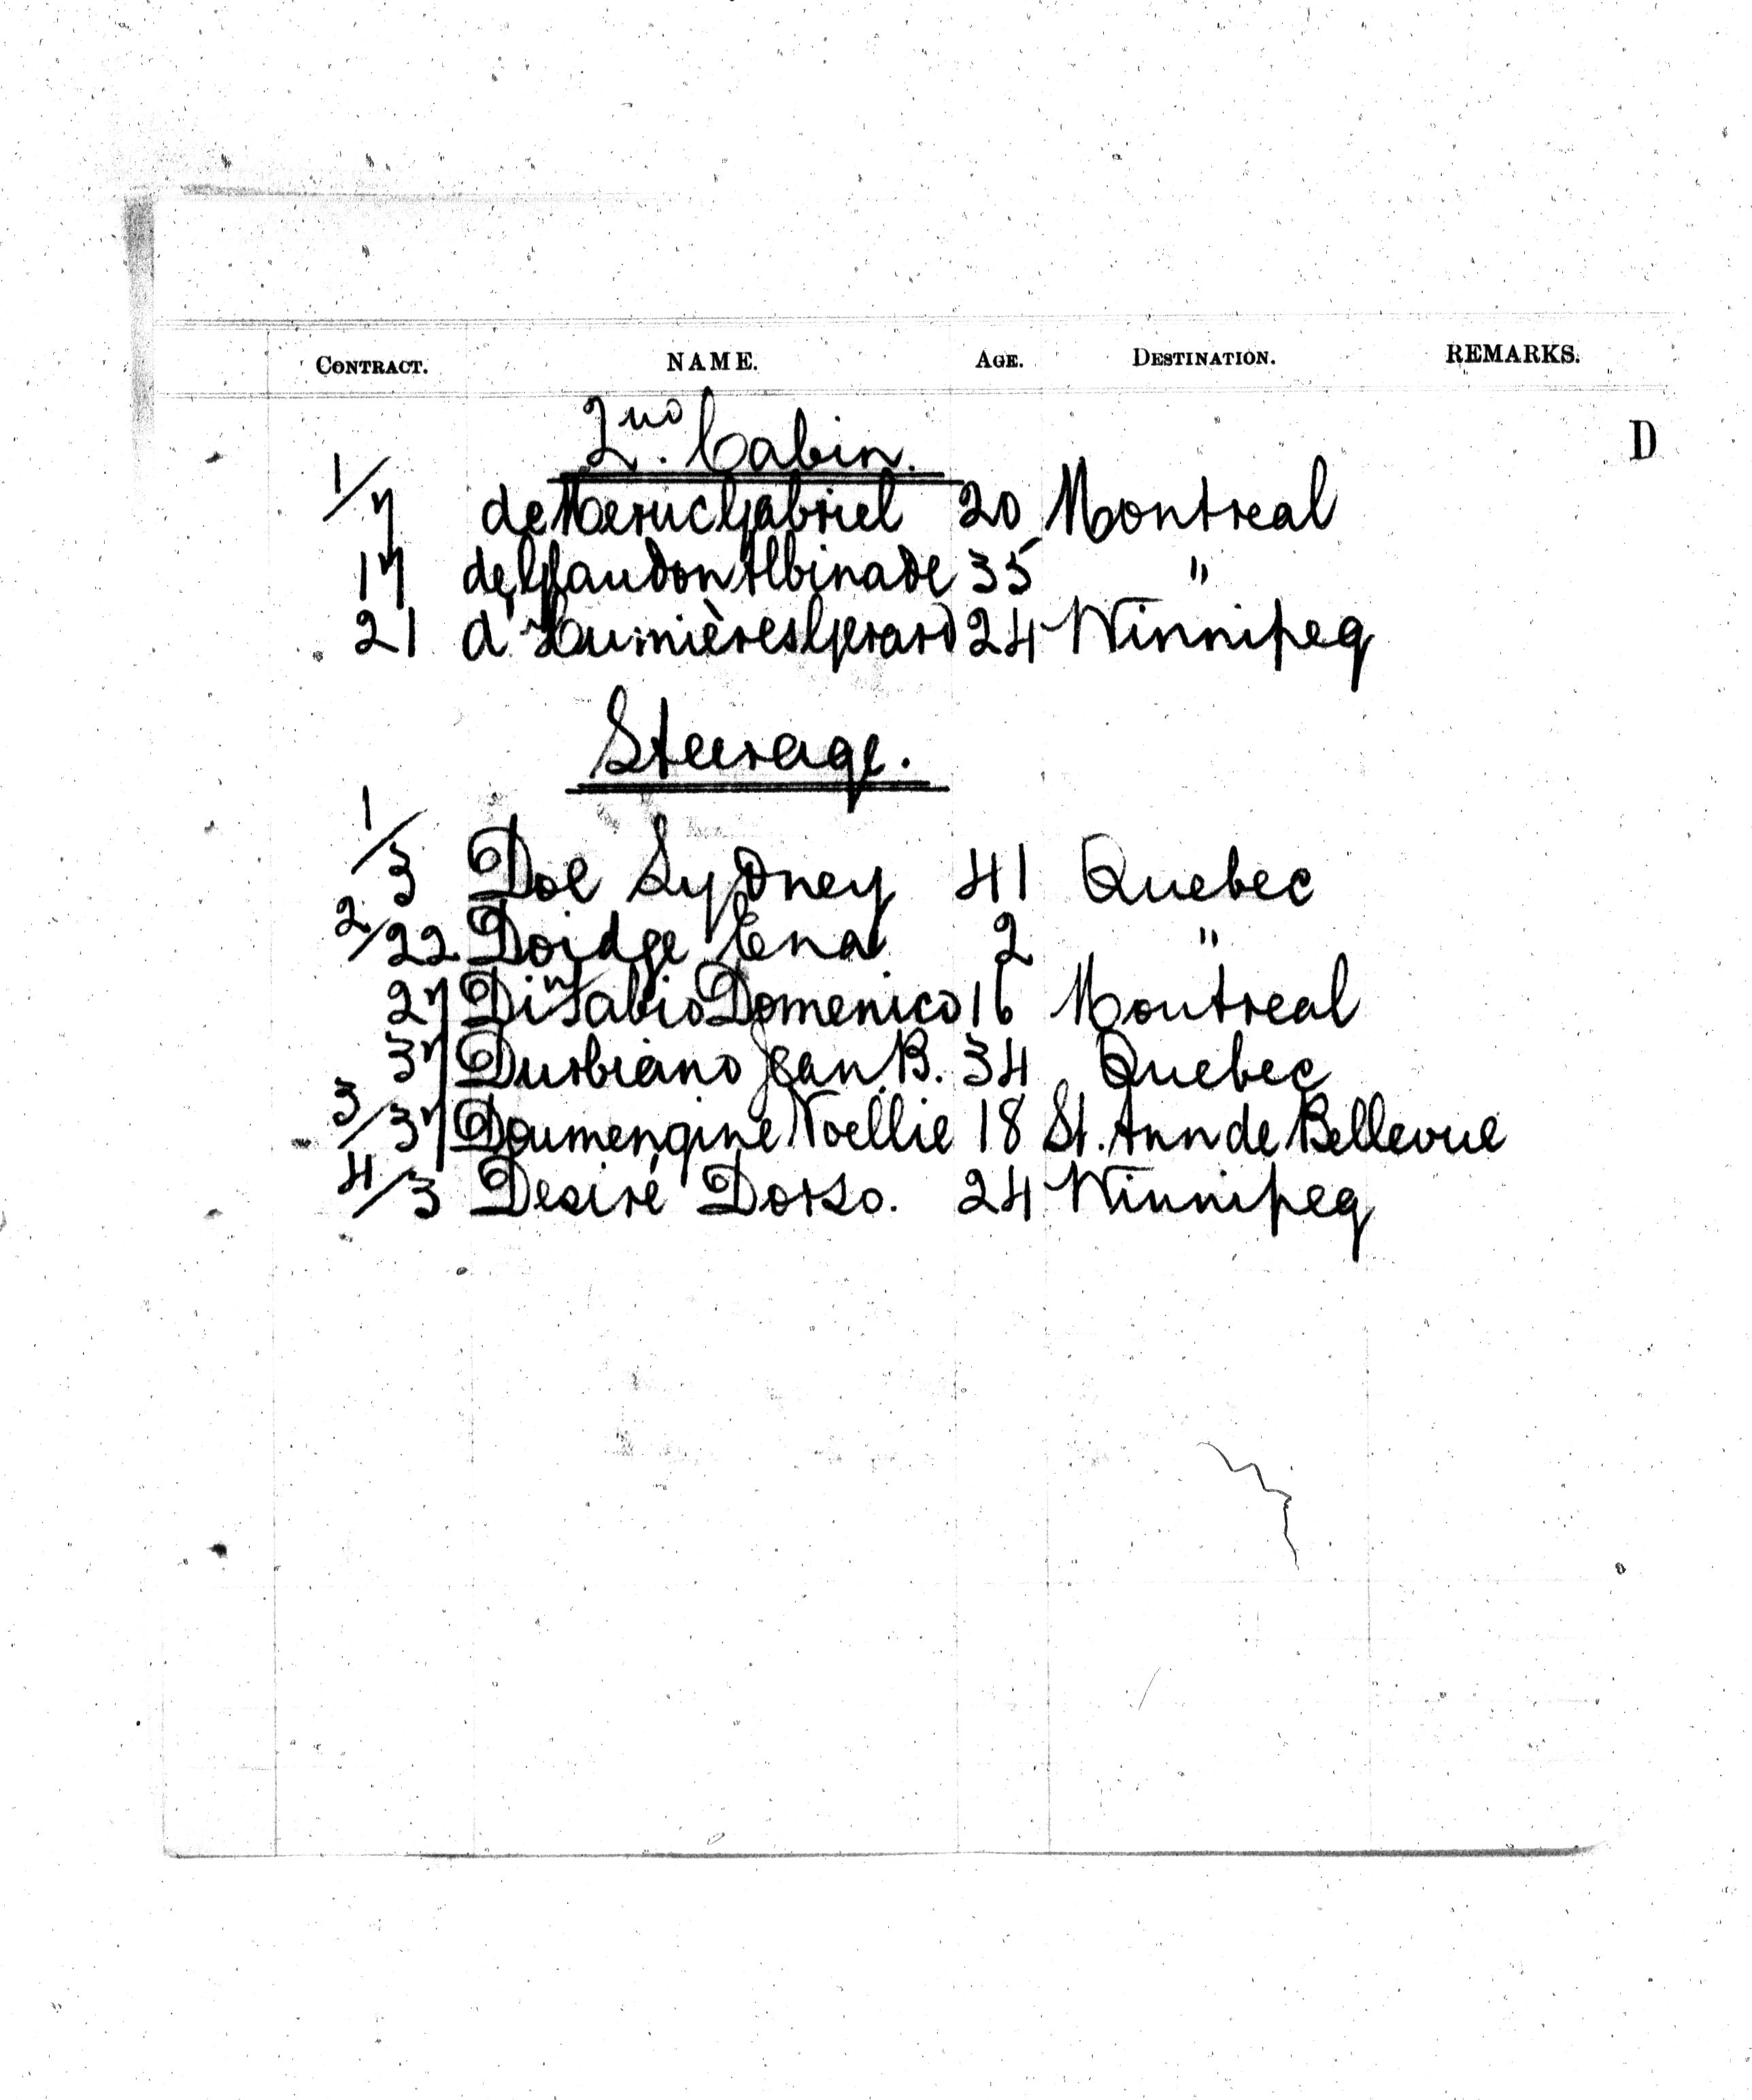 CONTRACT. NAME. AGE. DESTINATION. REMARKS.
D
2nd. Cabin.
1/7 de Meric Gabriel 20 Montreal
17 de Albinade 35 "
21 d'Humières Gerard 24 Winnipeg
Steerage.
1/3 Doe Sydney 41 Quebec
2/22 Doidge Ena 2 "
27 Di Fabio Domenico 16 Montreal
37 Durbiano Jean B. 34 Quebec
3/37 Doumengine Noellie 18 St. Ann de Bellevue
4/3 Desiré Dorso. 24 Winnipeg